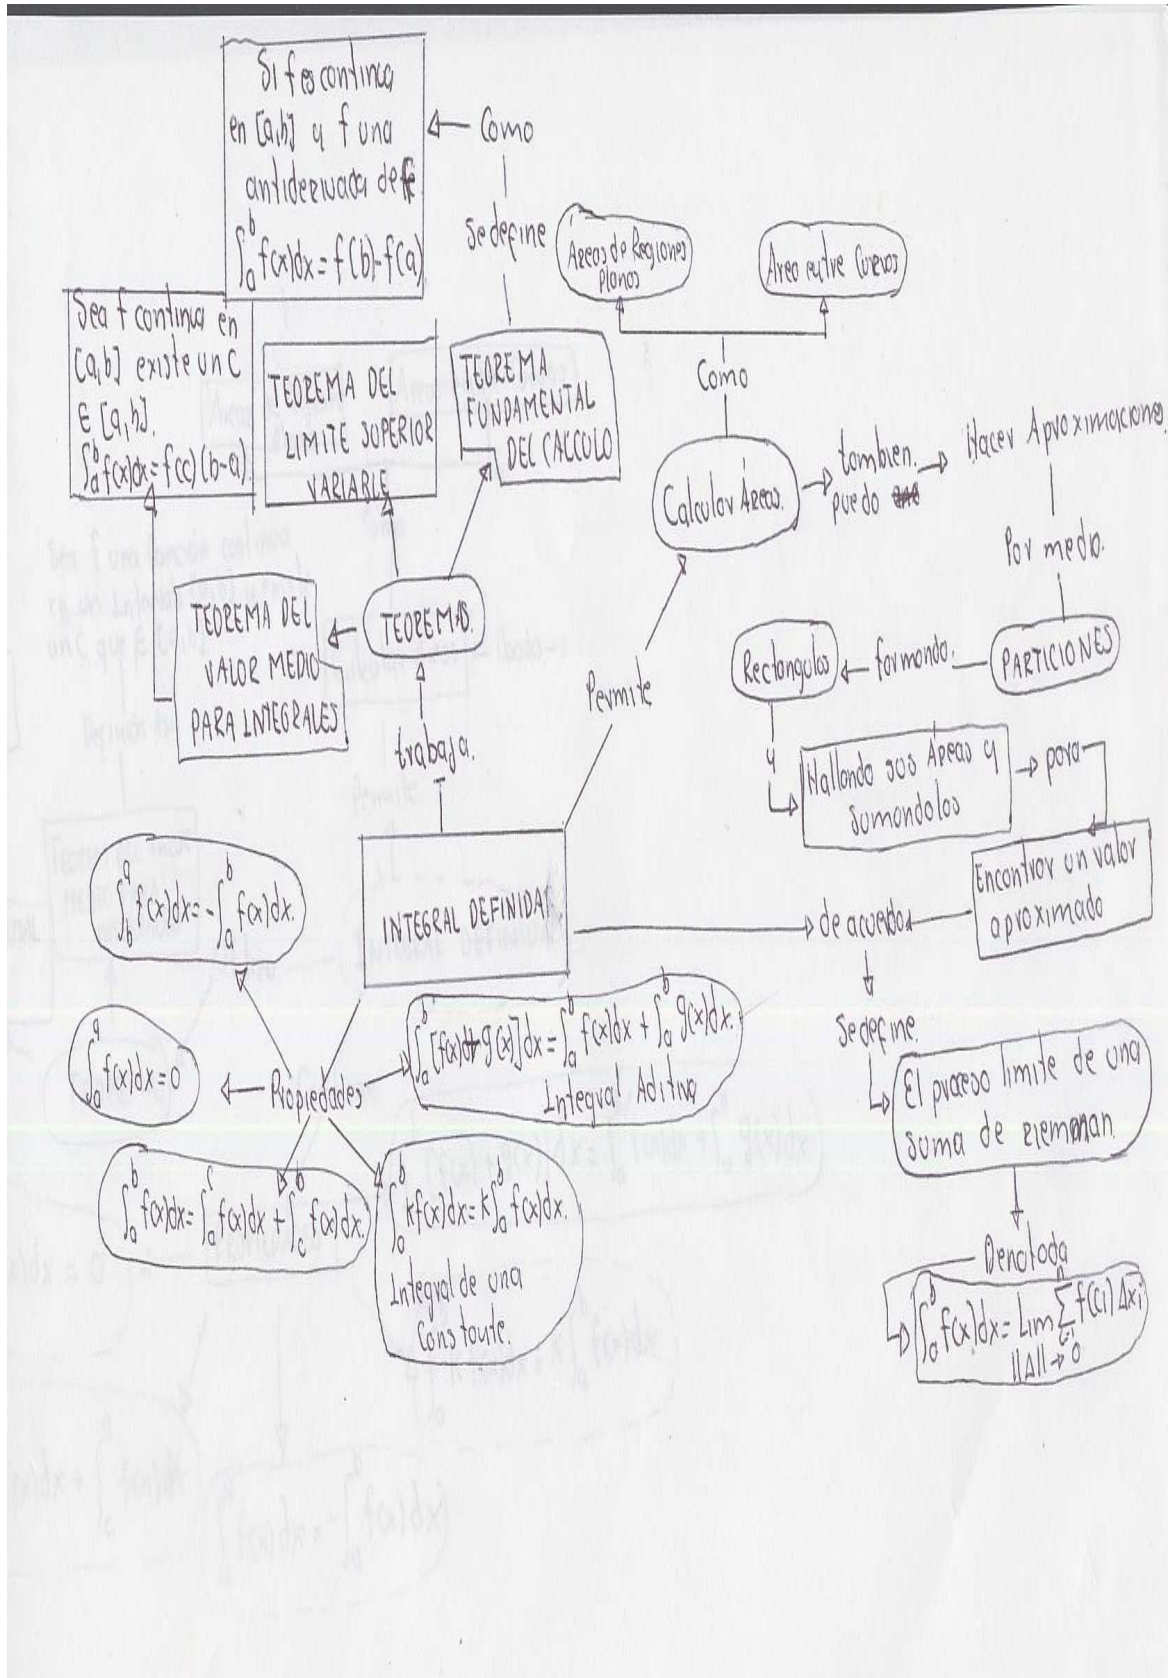 Si f es continua
en [a,b] y f una
antiderivada de f
∫_a^b f(x)dx = f(b)-f(a)
Como
Se define
Áreas de Regiones
planas
Area entre Curvas
Como
Sea f continua en
[a,b] existe un C
∈ [a,b].
∫_a^b f(x)dx = f(c)(b-a)
TEOREMA DEL
LIMITE SUPERIOR
VARIABLE
TEOREMA
FUNDAMENTAL
DEL CALCULO
Calcular Áreas.
tambien.
puedo
Hacer Aproximaciones
Por medio.
PARTICIONES
formando.
Rectangulos
y
Hallando sus Áreas y
sumandolos
para
Encontrar un valor
aproximado
TEOREMA DEL
VALOR MEDIO
PARA INTEGRALES
TEOREMAS.
trabaja.
Permite
INTEGRAL DEFINIDA
de acuerdo
Se define.
El proceso limite de una
suma de
Denotada
∫_a^b f(x)dx = Lim ∑_{i=1}^n f(ci) Δxi
||Δ|| → 0
∫_b^a f(x)dx = -∫_a^b f(x)dx.
∫_a^a f(x)dx = 0
Propiedades
∫_a^b [f(x)+g(x)]dx = ∫_a^b f(x)dx + ∫_a^b g(x)dx.
Integral Aditiva
∫_a^b f(x)dx = ∫_a^c f(x)dx + ∫_c^b f(x)dx.
∫_a^b kf(x)dx = k∫_a^b f(x)dx.
Integral de una
Constante.